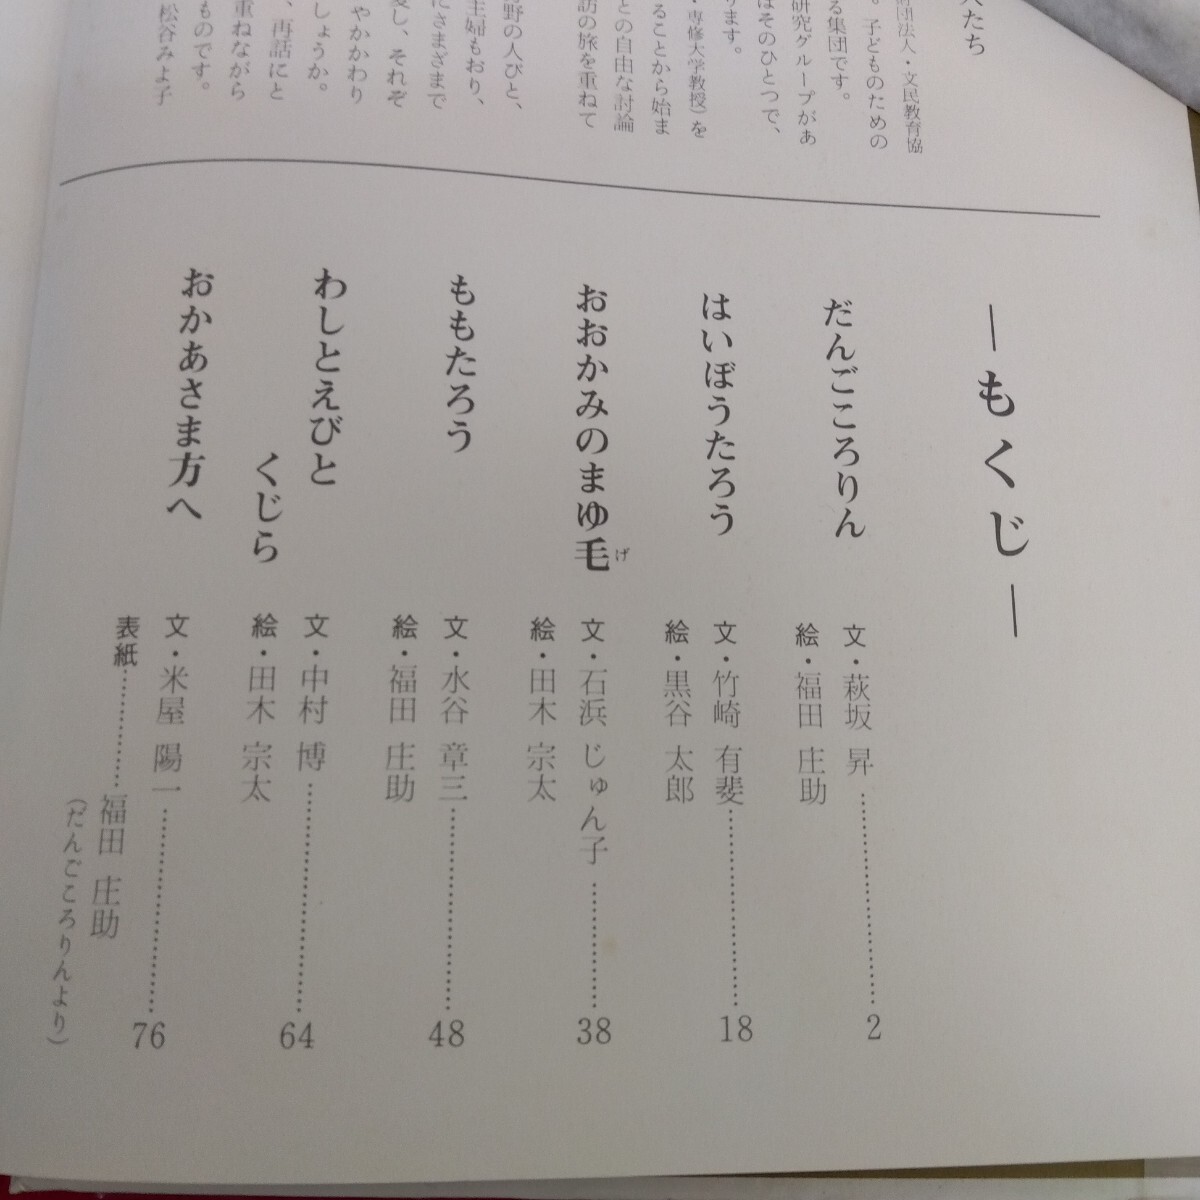 人たち
財団法人・文民教育協
。子どものための
る集団です。
研究グループがあ
はそのひとつで、
ります。
・専修大学教授)を
ることから始ま
との自由な討論
訪の旅を重ねて
野の人びと、
主婦もおり、
にさまざまで
愛し、それぞ
やかかわり
しょうか。
、再話にと
重ねながら
ものです。
松谷みよ子
―もくじ―
だんごころりん
文・萩坂 昇……………2
絵・福田 庄助
はいぼうたろう
文・竹崎 有斐……………18
絵・黒谷 太郎
おおかみのまゆ毛
げ
文・石浜 じゅん子…………38
絵・田木 宗太
ももたろう
文・水谷 章三……………48
絵・福田 庄助
わしとえびと
くじら
文・中村 博……………64
絵・田木 宗太
おかあさま方へ
文・米屋 陽一……………76
表紙…………福田 庄助
(だんごころりんより)